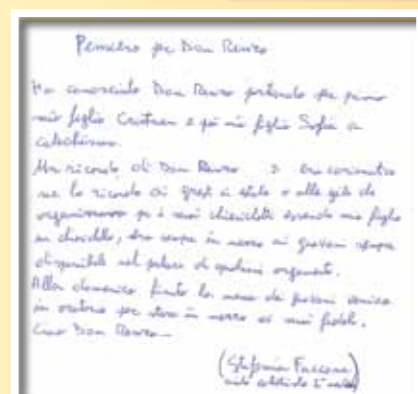 Pensiero per Don Renzo
Ho conosciuto Don Renzo portando per primo
mio figlio Cristian e poi mia figlia Sofia a
catechismo.
Un ricordo di Don Renzo
me lo ricordo ai grest in estate o alle gite che
organizzavano per i suoi chierichetti essendo mio figlio
un chierichetto, era sempre in mezzo ai giovani sempre
disponibile nel parlare di qualsiasi argomento.
Alla domenica finita la messa dei giovani veniva
in oratorio per stare in mezzo ai suoi fedeli.
Ciao Don Renzo...
(Stefania